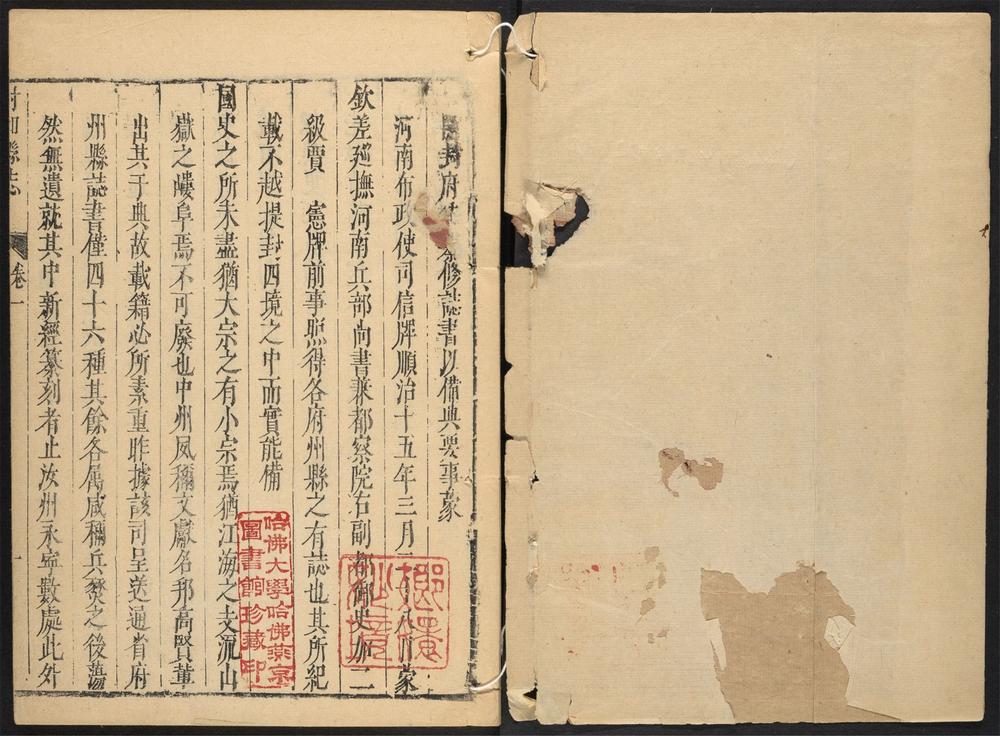 封府修誌書以備典要事蒙
河南布政使司信牌順治十五年三月八日蒙
欽差廵撫河南兵部尚書兼都察院右副都御史加二
級賈 憲牌前事照得各府州縣之有誌也其所紀
載不越提封四境之中而實能備
國史之所未盡猶大宗之有小宗焉猶江海之支流山
嶽之嶁阜焉不可廢也中州夙稱文獻名邦高賢輩
出其于典故載籍必所素重昨據該司呈送通省府
州縣誌書僅四十六種其餘各属咸稱兵燹之後蕩
然無遺就其中新經纂刻者止汝州永寧數處此外
縣志 卷一
哈佛大學哈佛燕京
圖書館珍藏印